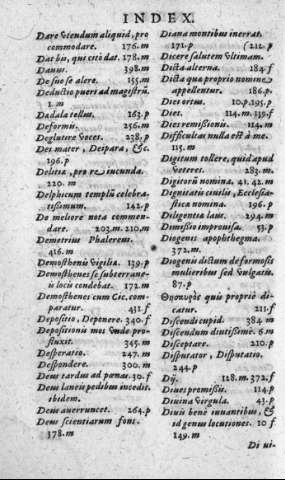 INDEX.
Dare vtendum aliquid, pro
commodare. 176.m
Dat bis, qui citò dat. 178.m
Dauus. 398.m
De suo se alere. 155.m
Deducto pueri ad magistrũ.
1.m
Dædala tellus. 163.p
Deformis. 256.m
Deglutere voces. 238.p
Dei mater, Deipara, &c.
196.p
Delitia, pro re iucunda.
220.m
Delphicum templũ celebra-
tissimum. 142.p
De meliore nota commen-
dare. 203.m. 210.m
Demetrius Phalereus.
416.m
Demosthenis vigilia. 139.p
Demosthenes se subterrane-
is locis condebat. 172.m
Demosthenes cum Cic. com-
paratur. 431.f
Depositio, Deponere. 340.f
Depositionis mos vnde pro-
fluxit. 345.m
Desperatio. 247.m
Despondere. 300.m
Deus tardus ad pœnas. 30.f
Deus laneis pedibus incedit.
ibidem.
Deus auerruncet. 264.p
Deus scientiarum fons.
378.m
Diana montibus inerrat.
171.p (212.p
Dicere salutem vltimam.
Dicta alterna. 184.f
Dicta quo proprio nomine
appellentur. 186.p
Dies ortus. 10.p.195.p
Diet. 114.m.339.f
Dies remissionis. 114.m
Difficultas nulla est à me.
115.m
Digitum tollere, quid apud
Veteres. 283.m
Digitorũ nomina. 41.42.m
Dignitatis ciuilis, Ecclesia-
stica nomina. 196.p
Diligentia laus. 294.m
Dimissio improuisa. 53.p
Diogenis apophthegma.
372.m
Diogenis dictum de formosis
mulieribus sed vulgatis.
87.p
quis propriè di-
catur. 211.f
Discendi cupid. 384.m
Discendum diutissimè. 6.m
Disceptare. 210.p
Disputator, Disputatio.
244.p
Dij. 128.m.372.f
Diues promissis. 114.p
Diuina virgula. 43.p
Diuis benè iuuantibus, &
id genus locutiones. 10.f
149.m
Di ui-